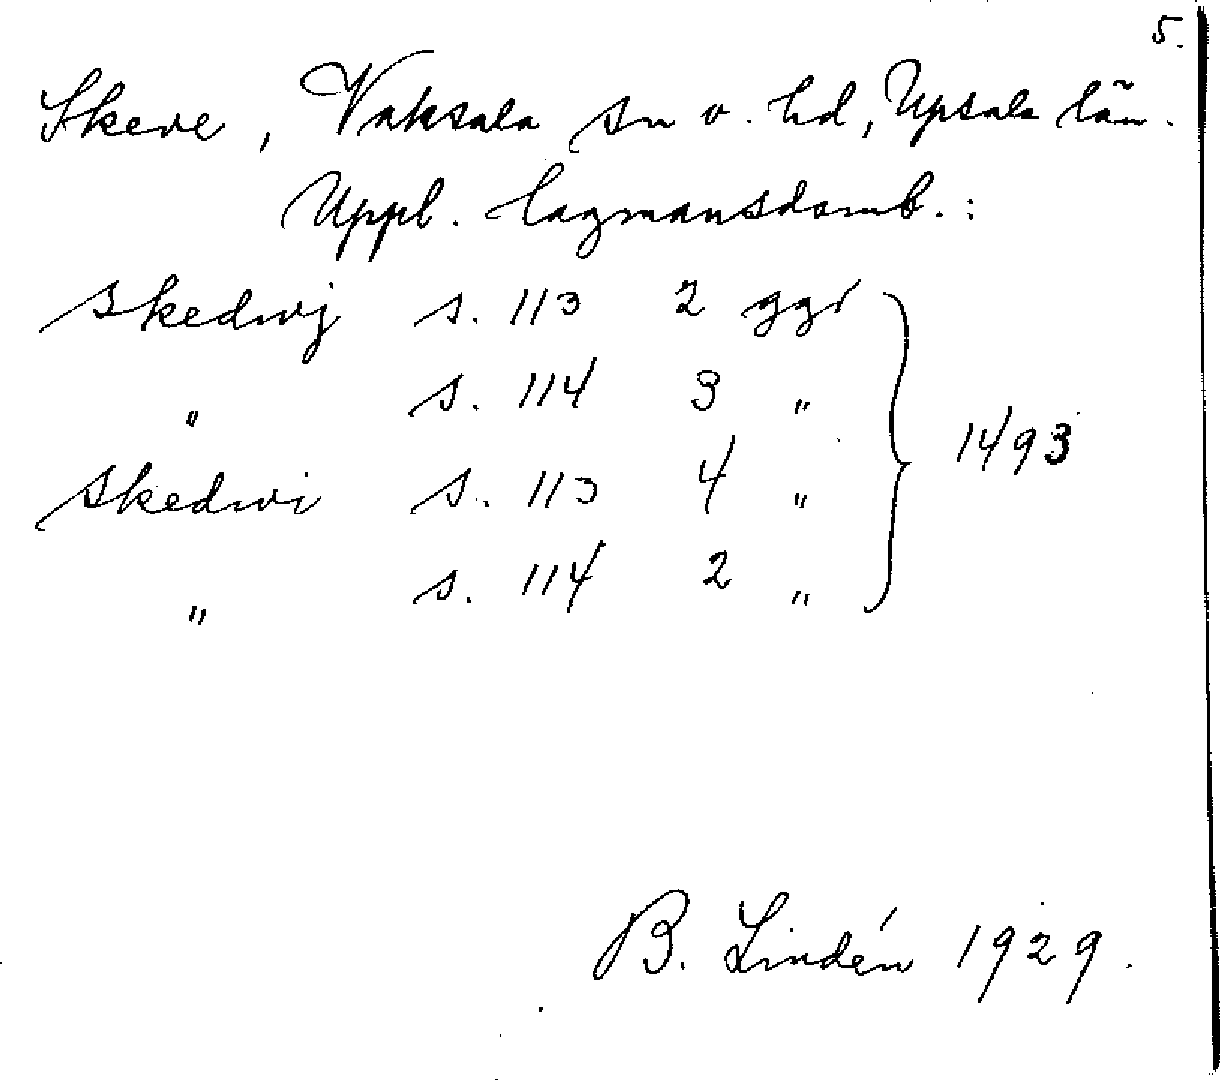 5.
Skeve, Vaksala sn o. hd, Upsala län.
Uppl. lagmansdomb.:
Skedwj s. 113 2 ggr
" s. 114 3 "
Skedwi s. 113 4 " } 1493
" s. 114 2 "
B. Lindén 1929.